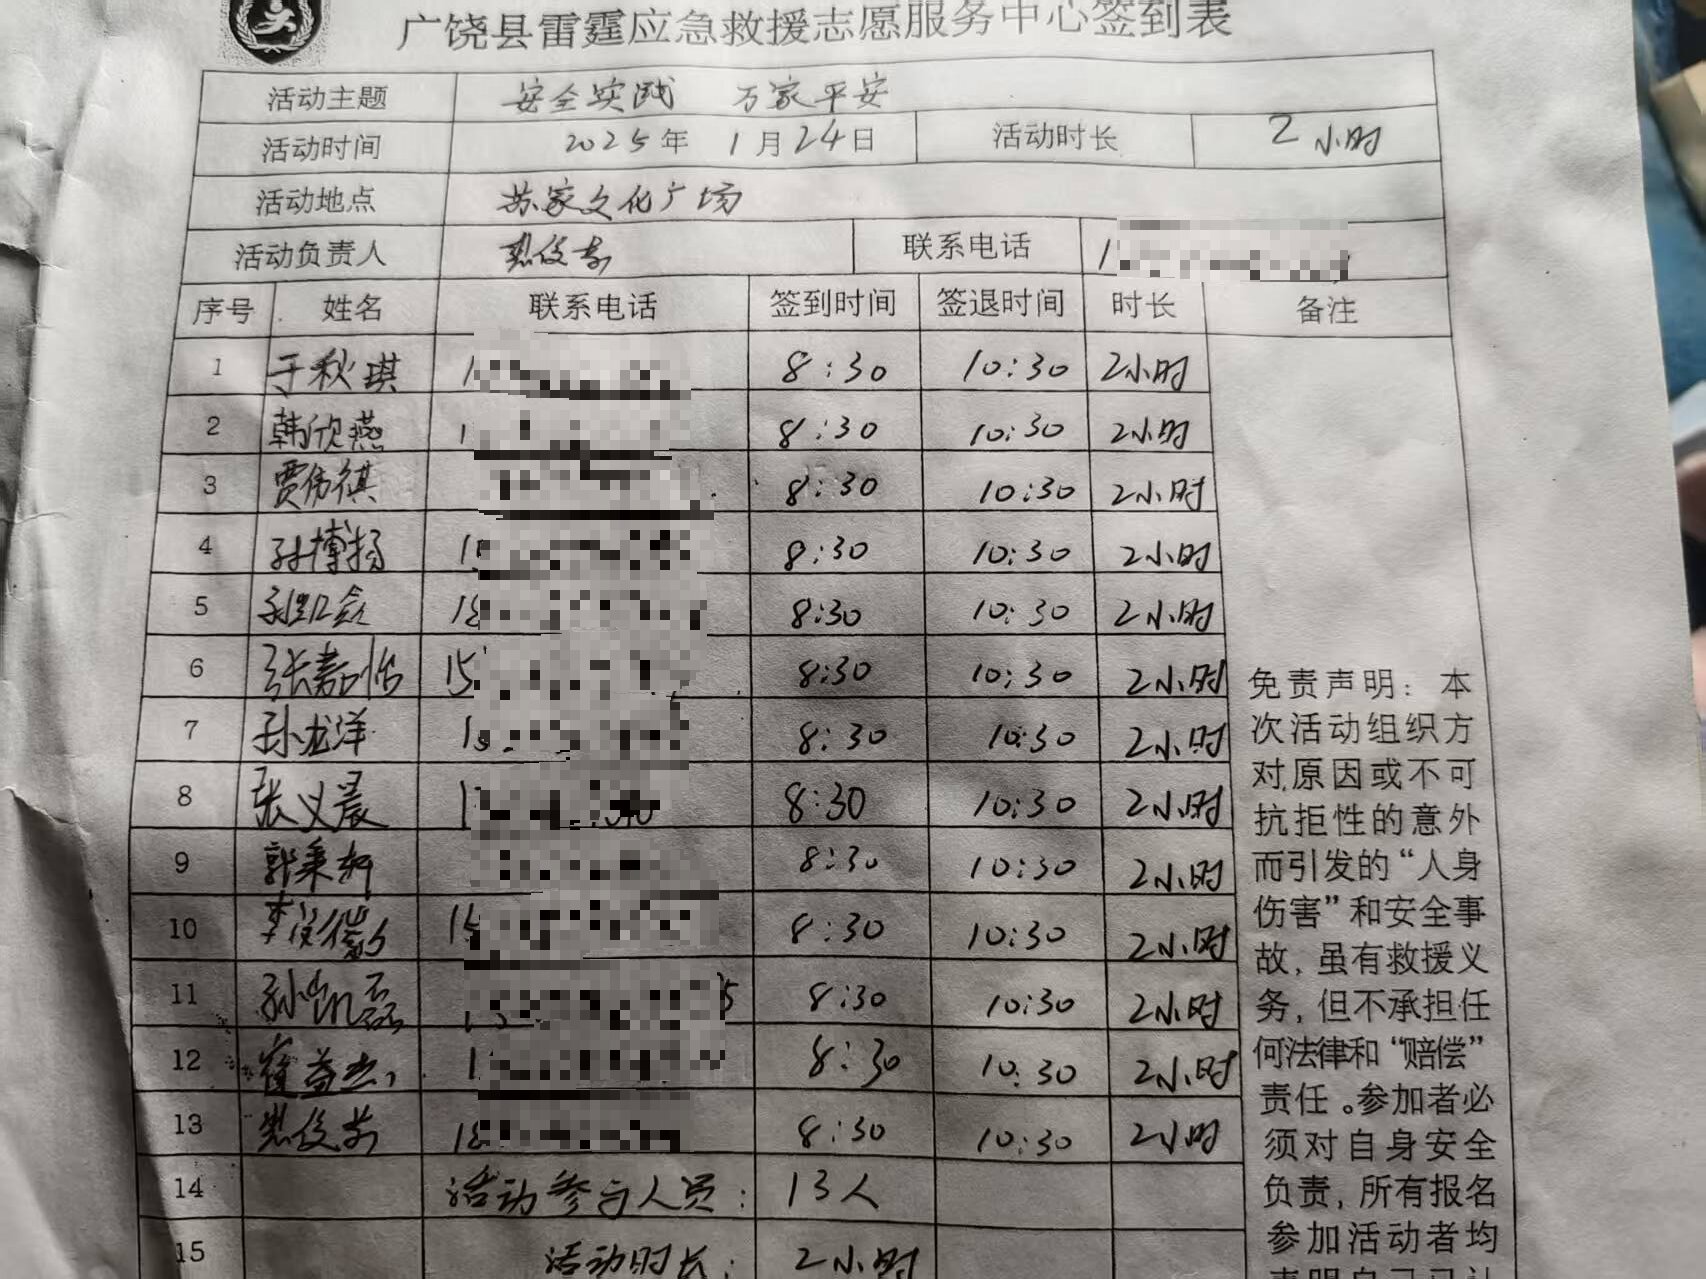 广饶县雷霆应急救援志愿服务中心签到表
活动主题 安全实践 万家平安
活动时间 2025年 1月24日 活动时长 2小时
活动地点 苏家文化广场
活动负责人 联系电话 1
序号 姓名 联系电话 签到时间 签退时间 时长 备注
1 于秋琪 1 8:30 10:30 2小时
2 韩欣燕 1 8:30 10:30 2小时
3 贾伟祺 8:30 10:30 2小时
4 孙博扬 1 8:30 10:30 2小时
5 18 8:30 10:30 2小时
6 张嘉怡 15 8:30 10:30 2小时
7 孙龙洋 1 8:30 10:30 2小时
8 张义晨 1 8:30 10:30 2小时
9 郭秉轩 8:30 10:30 2小时
10 李 15 8:30 10:30 2小时
11 孙凯磊 5 8:30 10:30 2小时
12 崔益杰 1 8:30 10:30 2小时
13 18 8:30 10:30 2小时
14 活动参与人员: 13人
15 活动时长: 2小时
免责声明：本
次活动组织方
对原因或不可
抗拒性的意外
而引发的“人身
伤害”和安全事
故，虽有救援义
务，但不承担任
何法律和“赔偿”
责任。参加者必
须对自身安全
负责，所有报名
参加活动者均